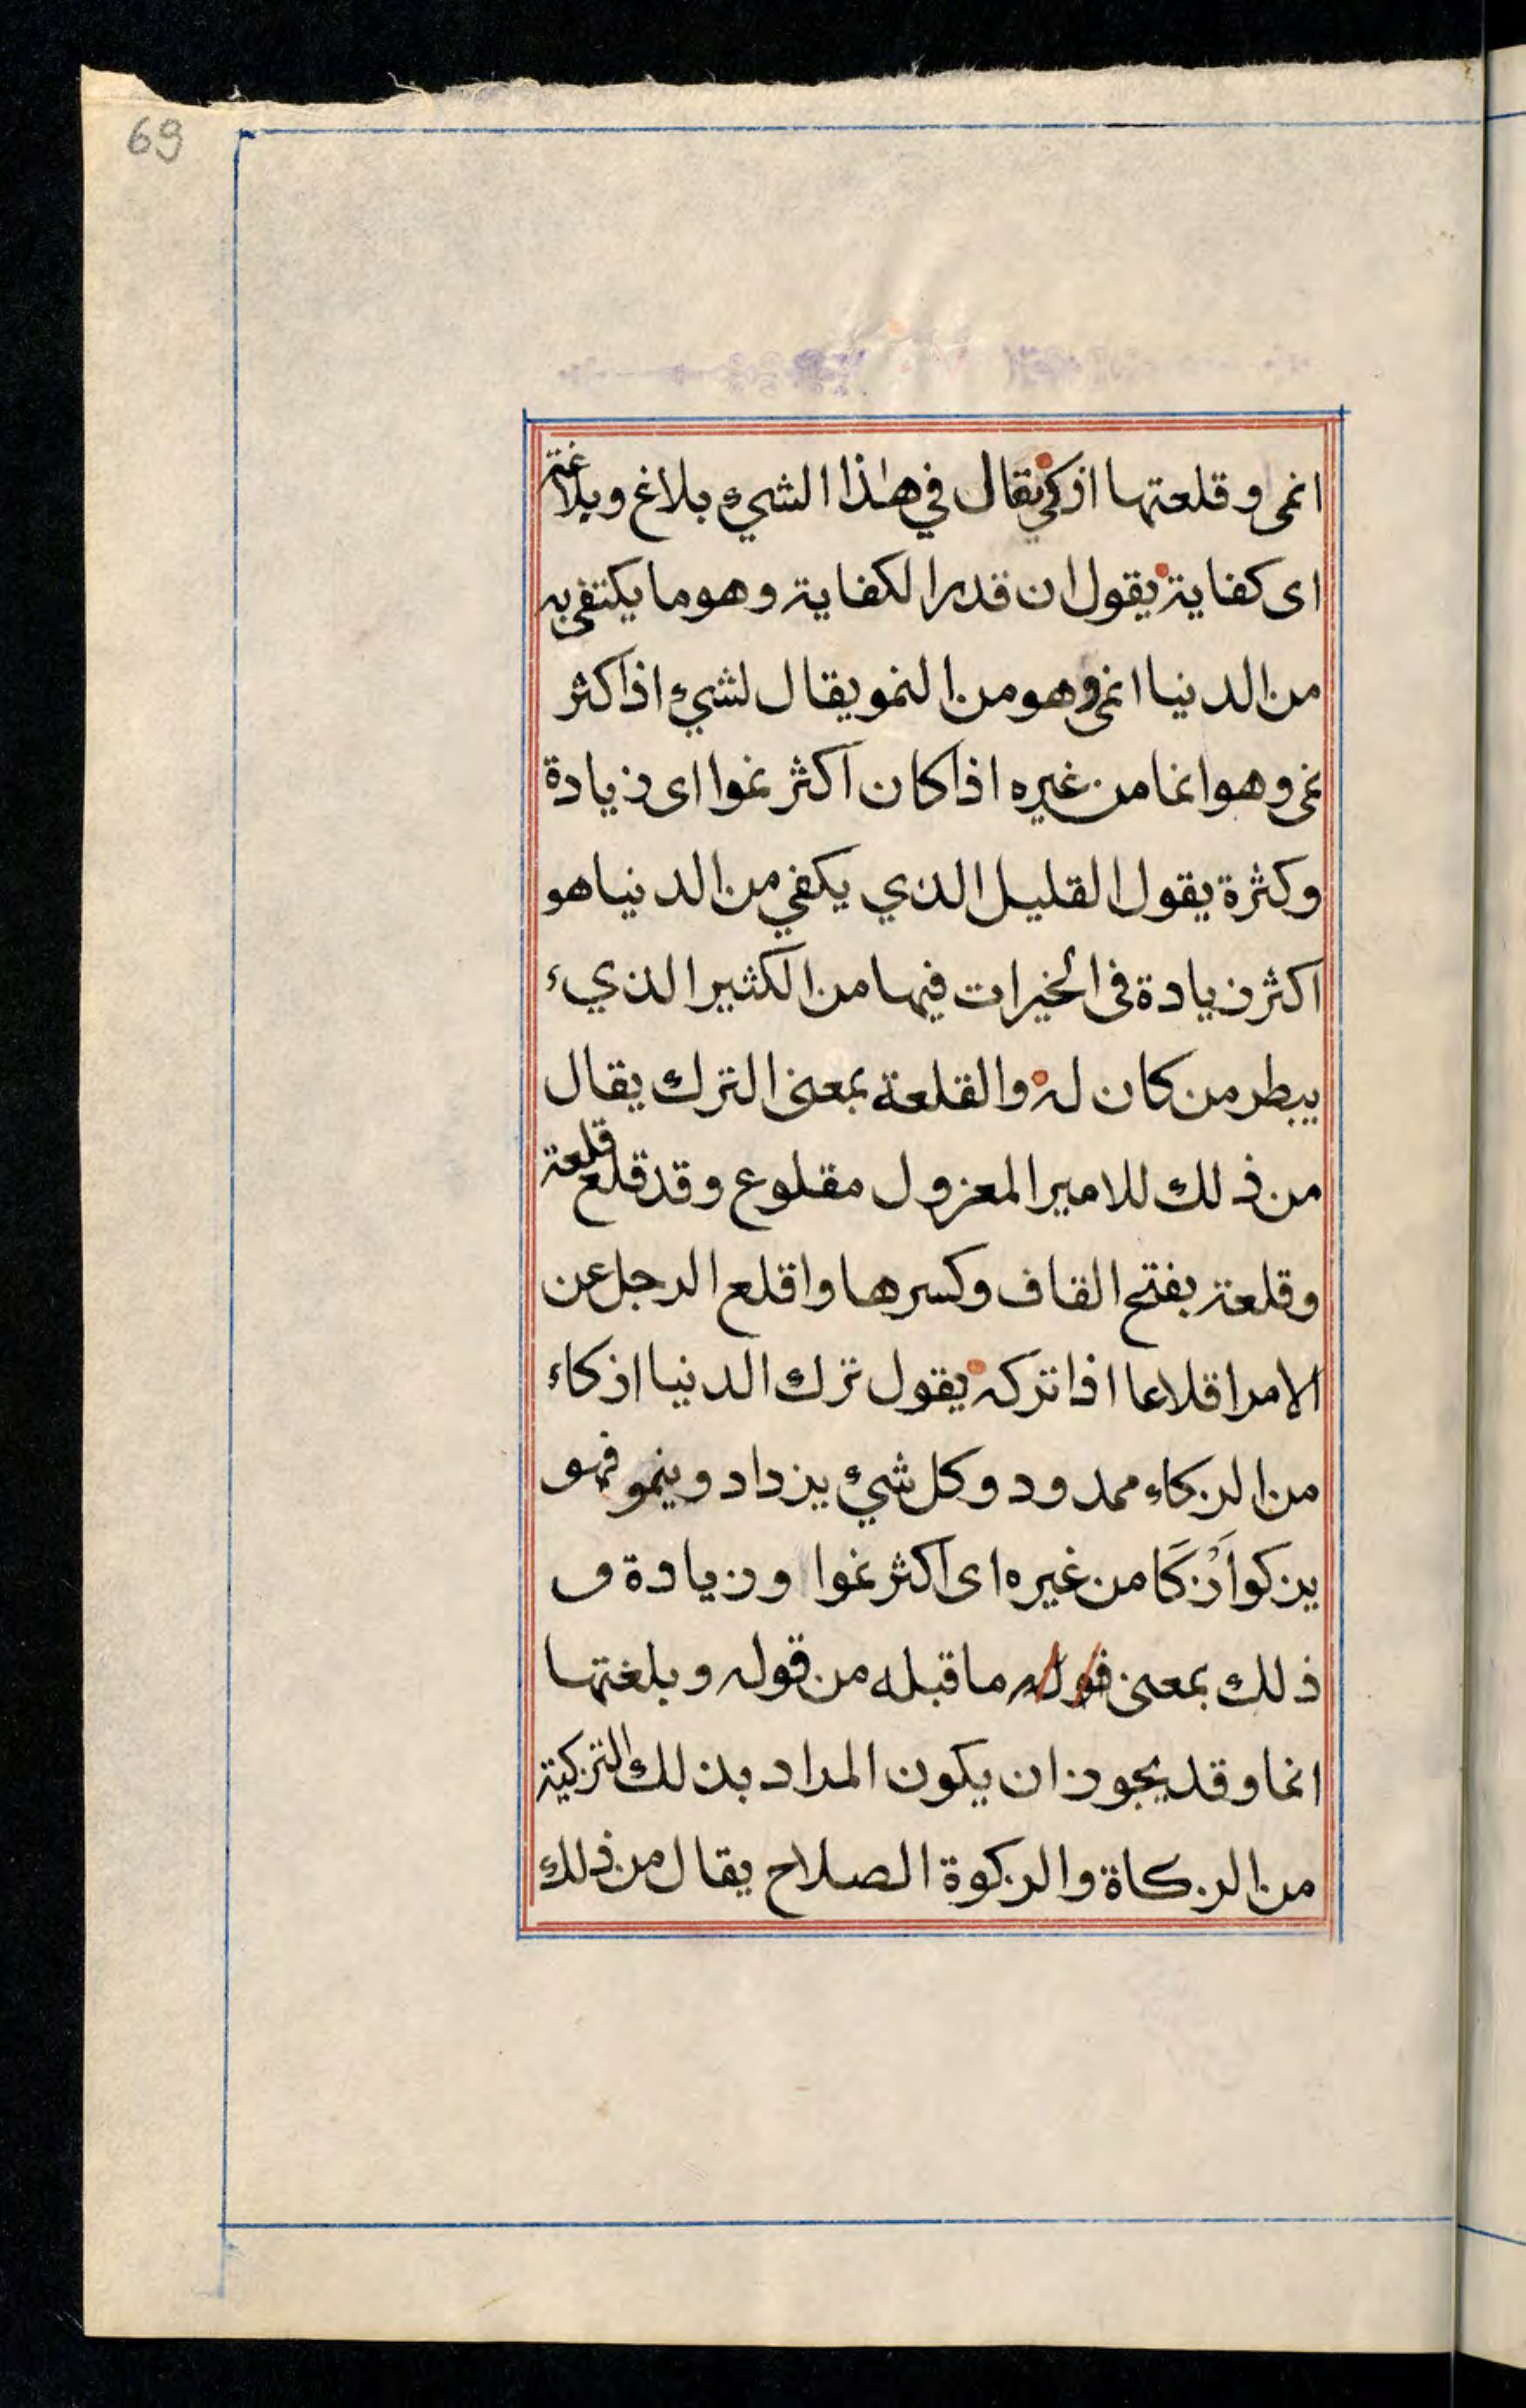 69
انمى وقلعتها ازكى يقال في هذا الشيء بلاغ وبلاغة
اى كفاية يقول ان قدر الكفاية وهو ما يكتفى به
من الدنيا انمى وهو من النمو يقال لشيء اذا كثر
نمى وهو انما من غيره اذا كان اكثر نموا اى زيادة
وكثرة يقول القليل الذي يكفي من الدنيا هو
اكثر زيادة فى الخيرات فيها من الكثير الذيء
يبطر من كان له والقلعة بمعنى الترك يقال
من ذلك للامير المعزول مقلوع وقد قلع قلعة
وقلعة بفتح القاف وكسرها واقلع الرجل عن
الامر اقلاعا اذا تركه يقول ترك الدنيا ازكاء
من الزكاء ممدود وكل شيء يزداد وينمو فهو
يزكو اَزْكَا من غيره اى اكثر نموا وزيادة و
ذلك بمعنى قوله ما قبله من قوله وبلغتها
انما وقد يجوز ان يكون المراد بذلك التزكية
من الزكاة والزكوة الصلاح يقال من ذلك